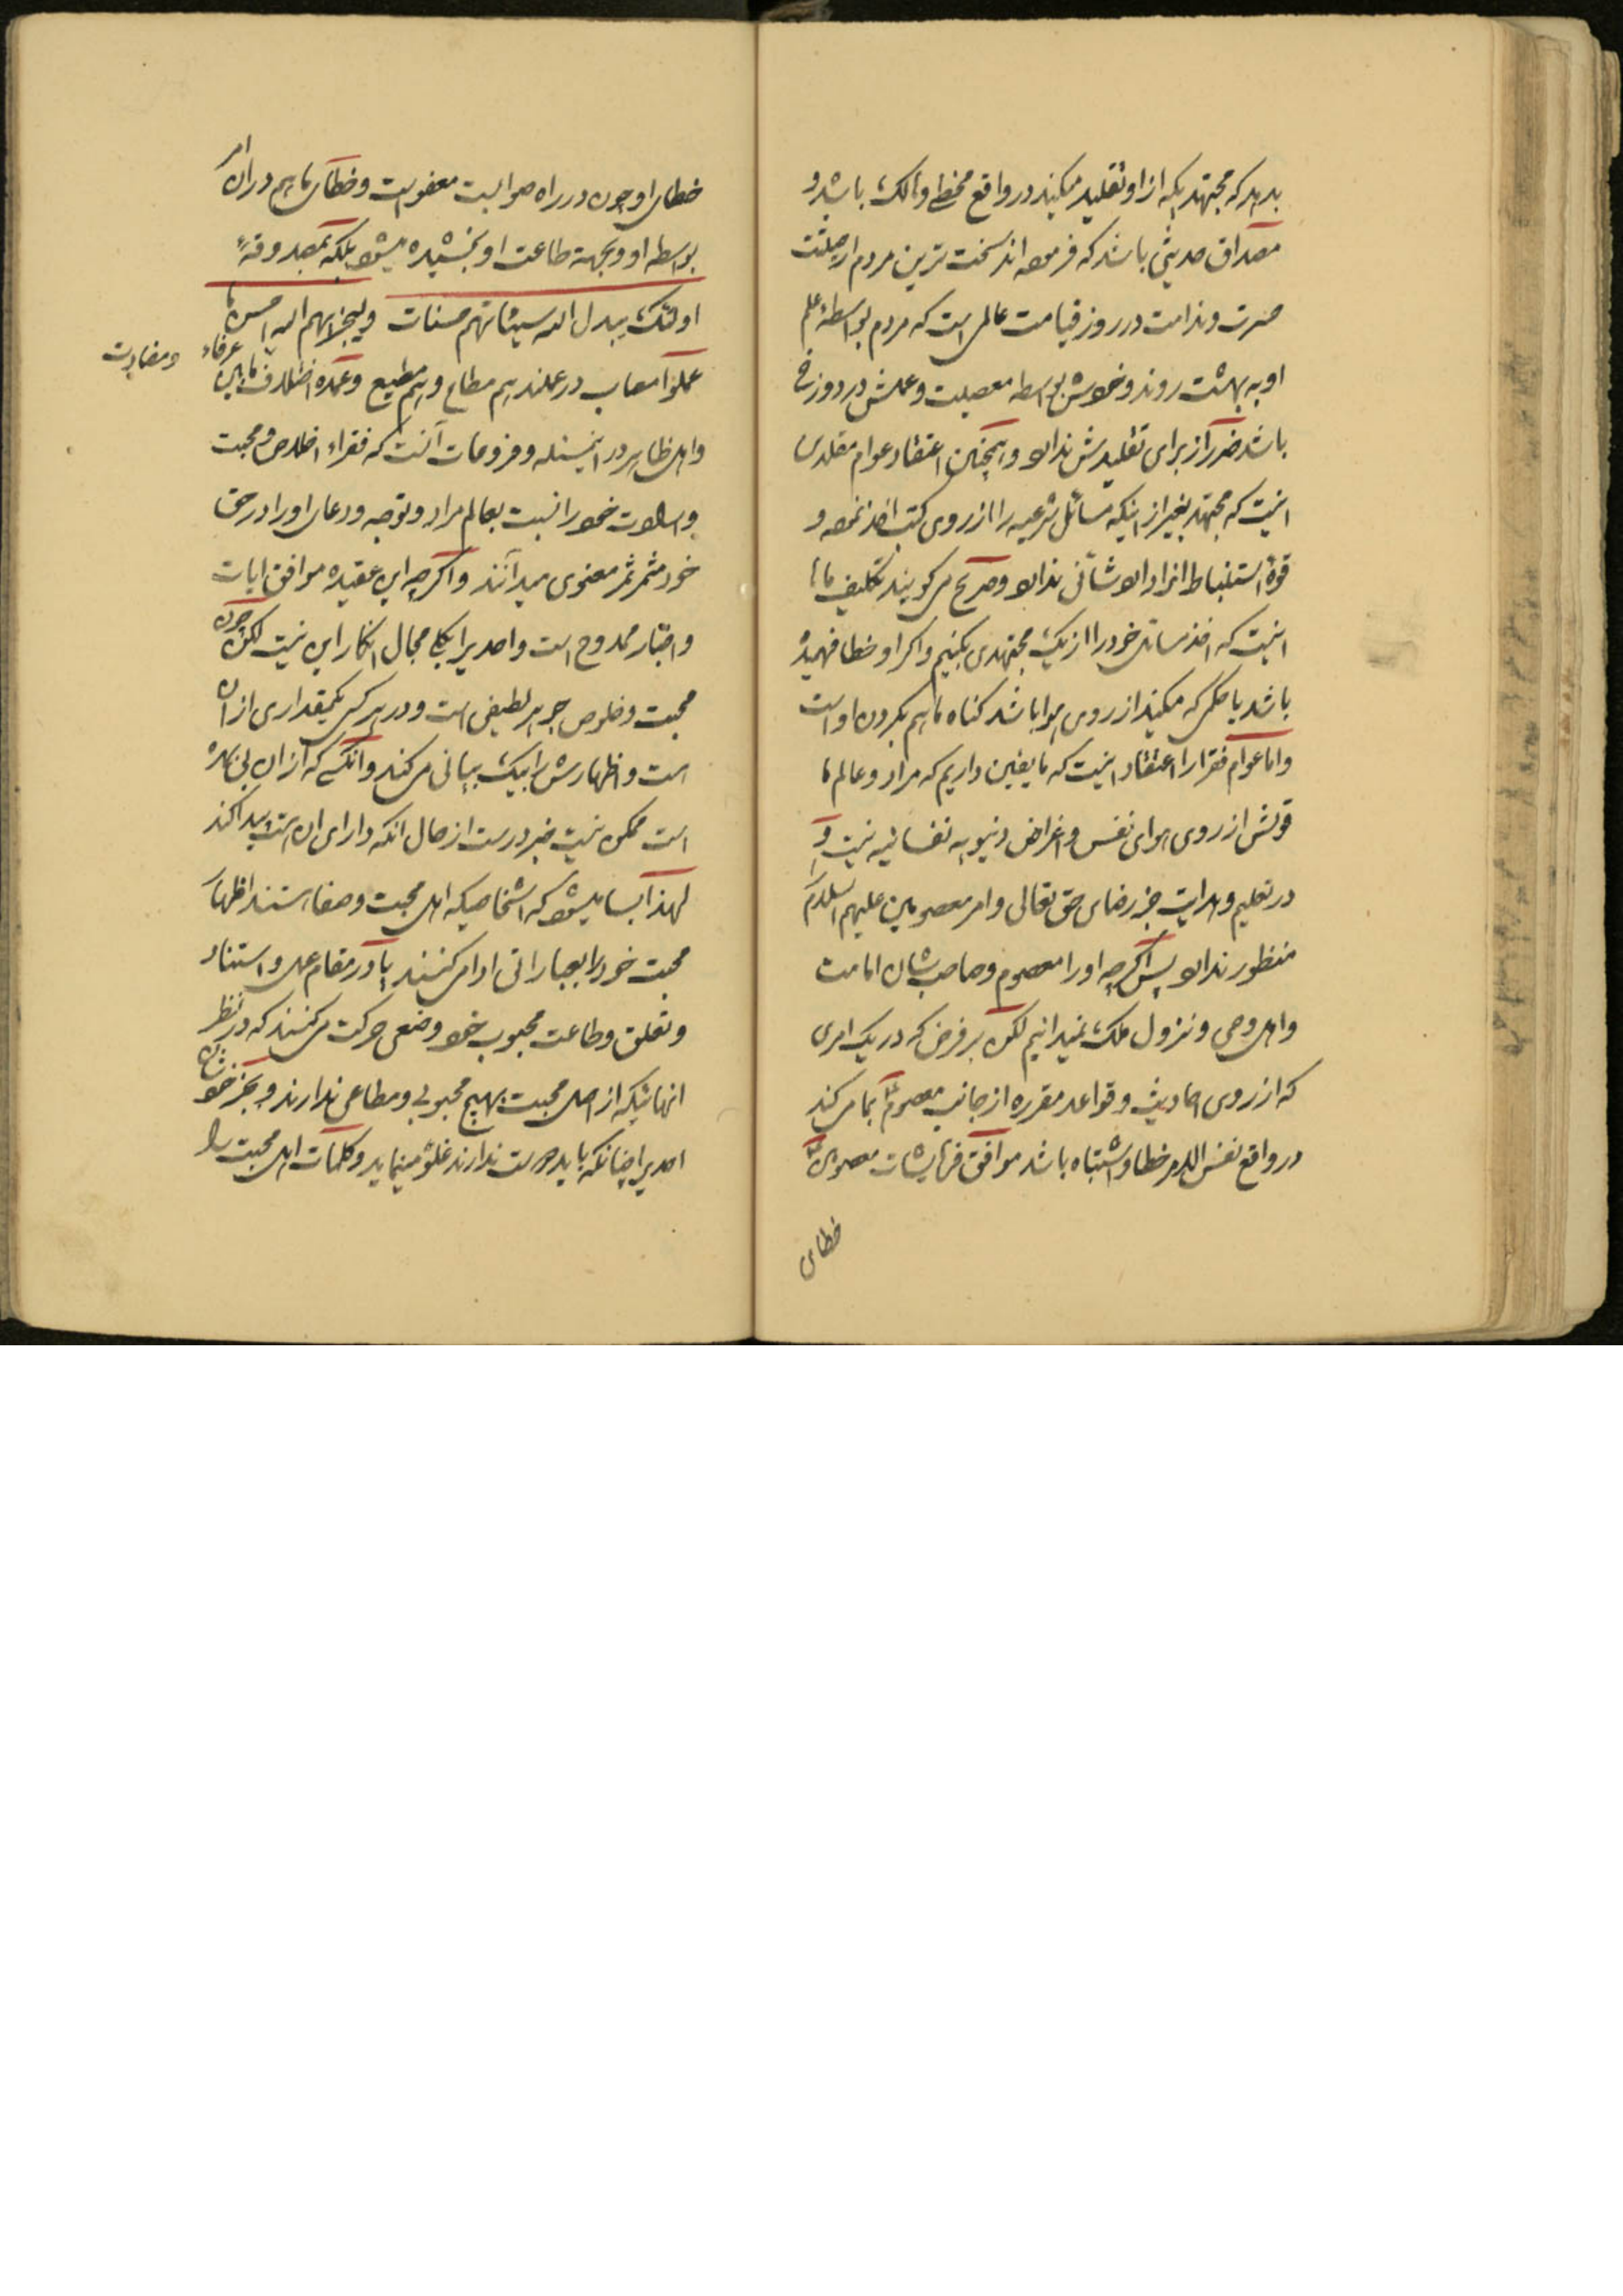 بدهد که مجتهدیکه از او تقلید میکنید در واقع مخطی و هالک باشد و
مصداق حدیثی باشد که فرموده اند سخت ترین مردم از حیثیت
حسرت و ندامت در روز قیامت عالمی است که مردم بواسطهٔ علم
او به بهشت روند و خودش بواسطه معصیت و عملش در دوزخ
باشد ضرر از برای تقلیدش ندارد و همچنین اعتقاد عوام مقلدین
اینست که مجتهد بغیر از اینکه مسائل شرعیه را از روی کتب اخذ نموده و
قوهٔ استنباط انرا دارد شأنی ندارد و صریح میگویند تکلیف ما
اینست که اخذ مسائل خود را از یک مجتهدی بکنیم و اگر او خطا فهمیده
باشد یا حکمی که میکند از روی هوا باشد گناه ما هم بگردن او است
و اما عوام فقرا را اعتقاد اینست که ما یقین داریم که مراد و عالم ما
قولش از روی هوای نفس و اغراض دنیویه نفسانیه نیست و
در تعلیم و هدایت جز رضای حق تعالی و امر معصومین علیهم السلام
منظور ندارد پس اگرچه او را معصوم و صاحب شان امامت
و اهل وحی و نزول ملک نمیدانیم لکن بر فرض که در یک امری
که از روی احادیث و قواعد مقرره از جانب معصوم بما می کند
در واقع نفس الامر خطا و اشتباه باشد موافق فرمایشات معصومین
خطای
خطای او چون در راه صوابست معفو است و خطای ما هم در ان امر
بواسطه او و بجهة طاعت او بخشیده میشود بلکه بمصدوقهٔ
اولئک یبدل الله سیئاتهم حسنات و لیجزیهم الله احسن ما
عملوا مصاب در عملند هم مطاع و هم مطیع و عمده اختلاف مابین عرفاء
و معاریت
و اهل ظاهر در اینمسئله و فروعات آنست که فقراء اخلاص و محبت
و ارادت خود را نسبت بعالم مراد و توجه و دعای او را در حق
خود مثمر ثمر معنوی میدانند و اگرچه این عقیده موافق ایات
و اخبار ممدوح است و احدیرا بکلی مجال انکار این نیست لکن چون
محبت و خلوص جوهر لطیفی است و در هر کس یکمقداری از ان
است و اظهارش را بیک بیانی می کند و انکسی که از ان بی بهره
است ممکن نیست خبر درست از حال انکه دارای ان هست پیدا کند
لهذا بسا میشود که اشخاصیکه اهل محبت و صفا هستند اظهار
محبت خود را بعباراتی ادا می کنند یا در مقام عمل و استناد
و تعلق و طاعت محبوب خود وضعی حرکت می کنند که در نظر
انهائیکه از اصل محبت بهیچ محبوبی و مطاعی ندارند و بجز خودشان
احدیرا چنانکه باید دوست ندارند غلو مینماید و کلمات اهل محبت را